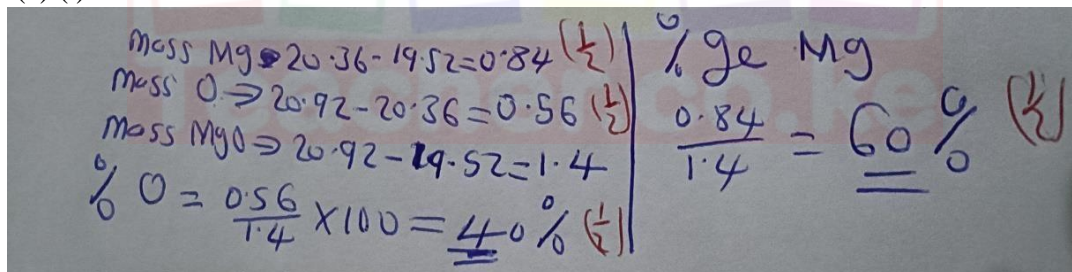 mass Mg 20.36-19.52=0.84 (½)
mass O ⇒ 20.92-20.36=0.56 (½)
mass MgO ⇒ 20.92-19.52=1.4
% O = 0.56/1.4 ×100 = 40% (½)
%ge Mg
0.84/1.4 = 60% (½)